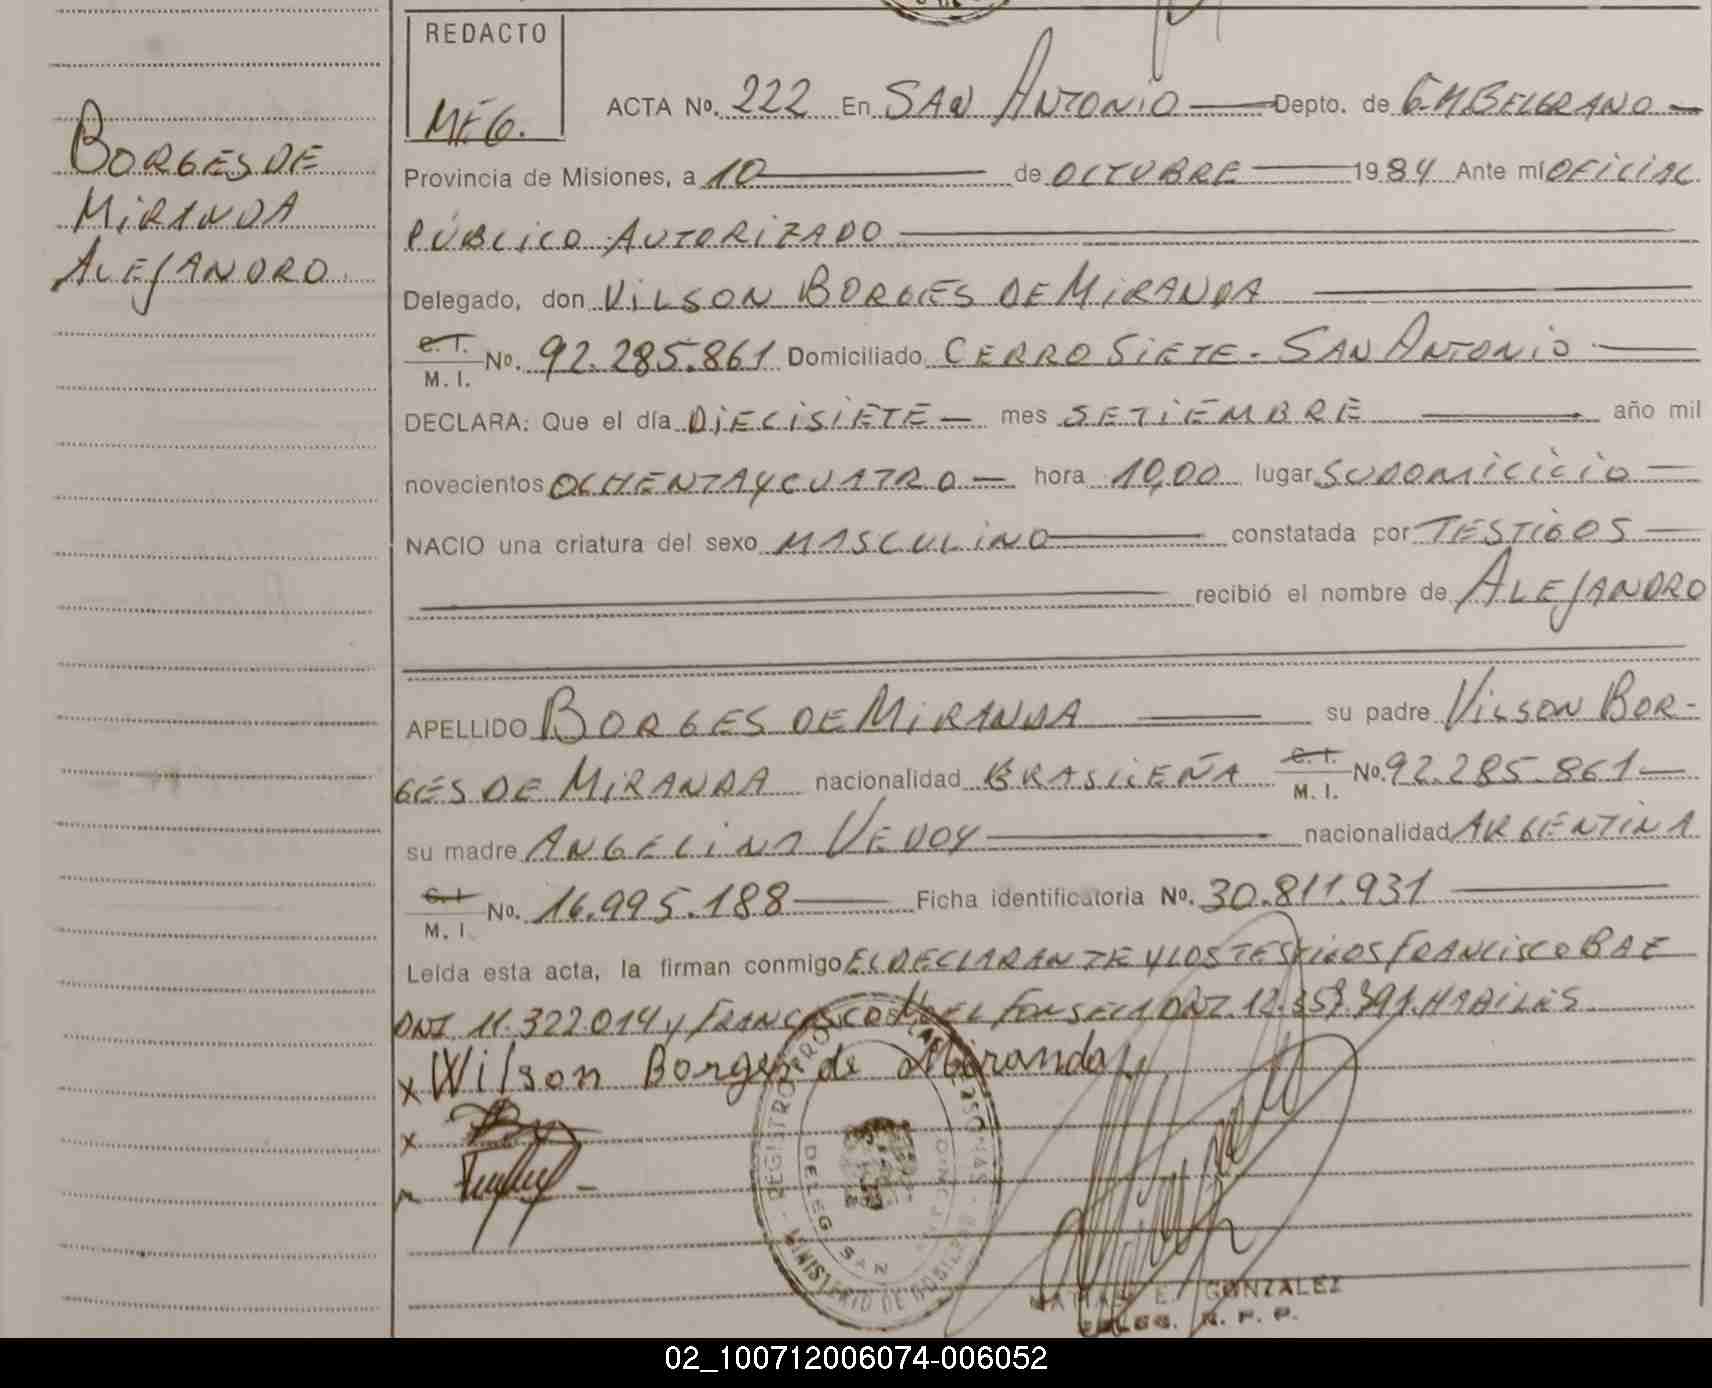 REDACTO
MEG.
BORGES DE
MIRANDA
ALEJANDRO
ACTA No. 222 En SAN ANTONIO Depto. de G.M.BELGRANO
Provincia de Misiones, a 10 de OCTUBRE 1984 Ante mi OFICIAL
PÚBLICO AUTORIZADO
Delegado, don VILSON BORGES DE MIRANDA
C.I. M.I. No. 92.285.861 Domiciliado CERRO SIETE - SAN ANTONIO
DECLARA: Que el día DIECISIETE mes SETIEMBRE año mil
novecientos OCHENTA Y CUATRO hora 10,00 lugar SU DOMICILIO
NACIO una criatura del sexo MASCULINO constatada por TESTIGOS
recibió el nombre de ALEJANDRO
APELLIDO BORGES DE MIRANDA su padre VILSON BOR-
GES DE MIRANDA nacionalidad BRASILEÑA C.I. M.I. No. 92.285.861
su madre ANGELINA nacionalidad ARGENTINA
C.I M.I. No. 16.995.188 Ficha identificatoria No. 30.811.931
Leída esta acta, la firman conmigo EL DECLARANTE Y LOS TESTIGOS FRANCISCO BAE
DNI 11.322.014 y FRANCISCO FONSECA DNI. HABILES
x Wilson Borges de Miranda
x
REGISTRO PERSONAS
MINISTERIO DE GOBIERNO
DELEG. SAN ANTONIO
E. GONZALEZ
DELEG. R. P. P.
02_100712006074-006052